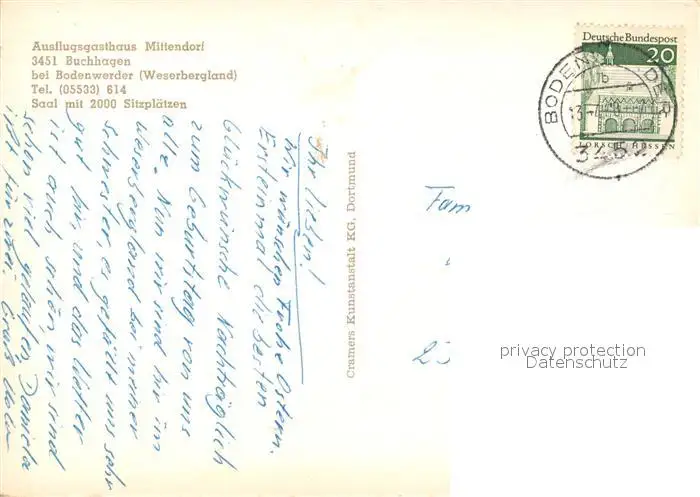 Ausflugsgasthaus Mittendorf
3451 Buchhagen
bei Bodenwerder (Weserbergland)
Tel. (05533) 614
Saal mit 2000 Sitzplätzen
Ihr Lieben!
Wir wünschen Frohe Ostern.
Ersteinmal die besten
Glückwünsche Nachträglich
zum Geburtstag von uns
alle. Nun wir sind hir im
Weserbergland bei meiner
Schwester, es gefällt uns sehr
gut hir, und das Wetter
ist auch schön, wir sind
schon viel gelaufen Daniela
ist für zwei. Gruß
Cramers Kunstanstalt KG, Dortmund
Deutsche Bundespost
20
LORSCH HESSEN
BODENWERDER
3452
Fam
privacy protection
Datenschutz